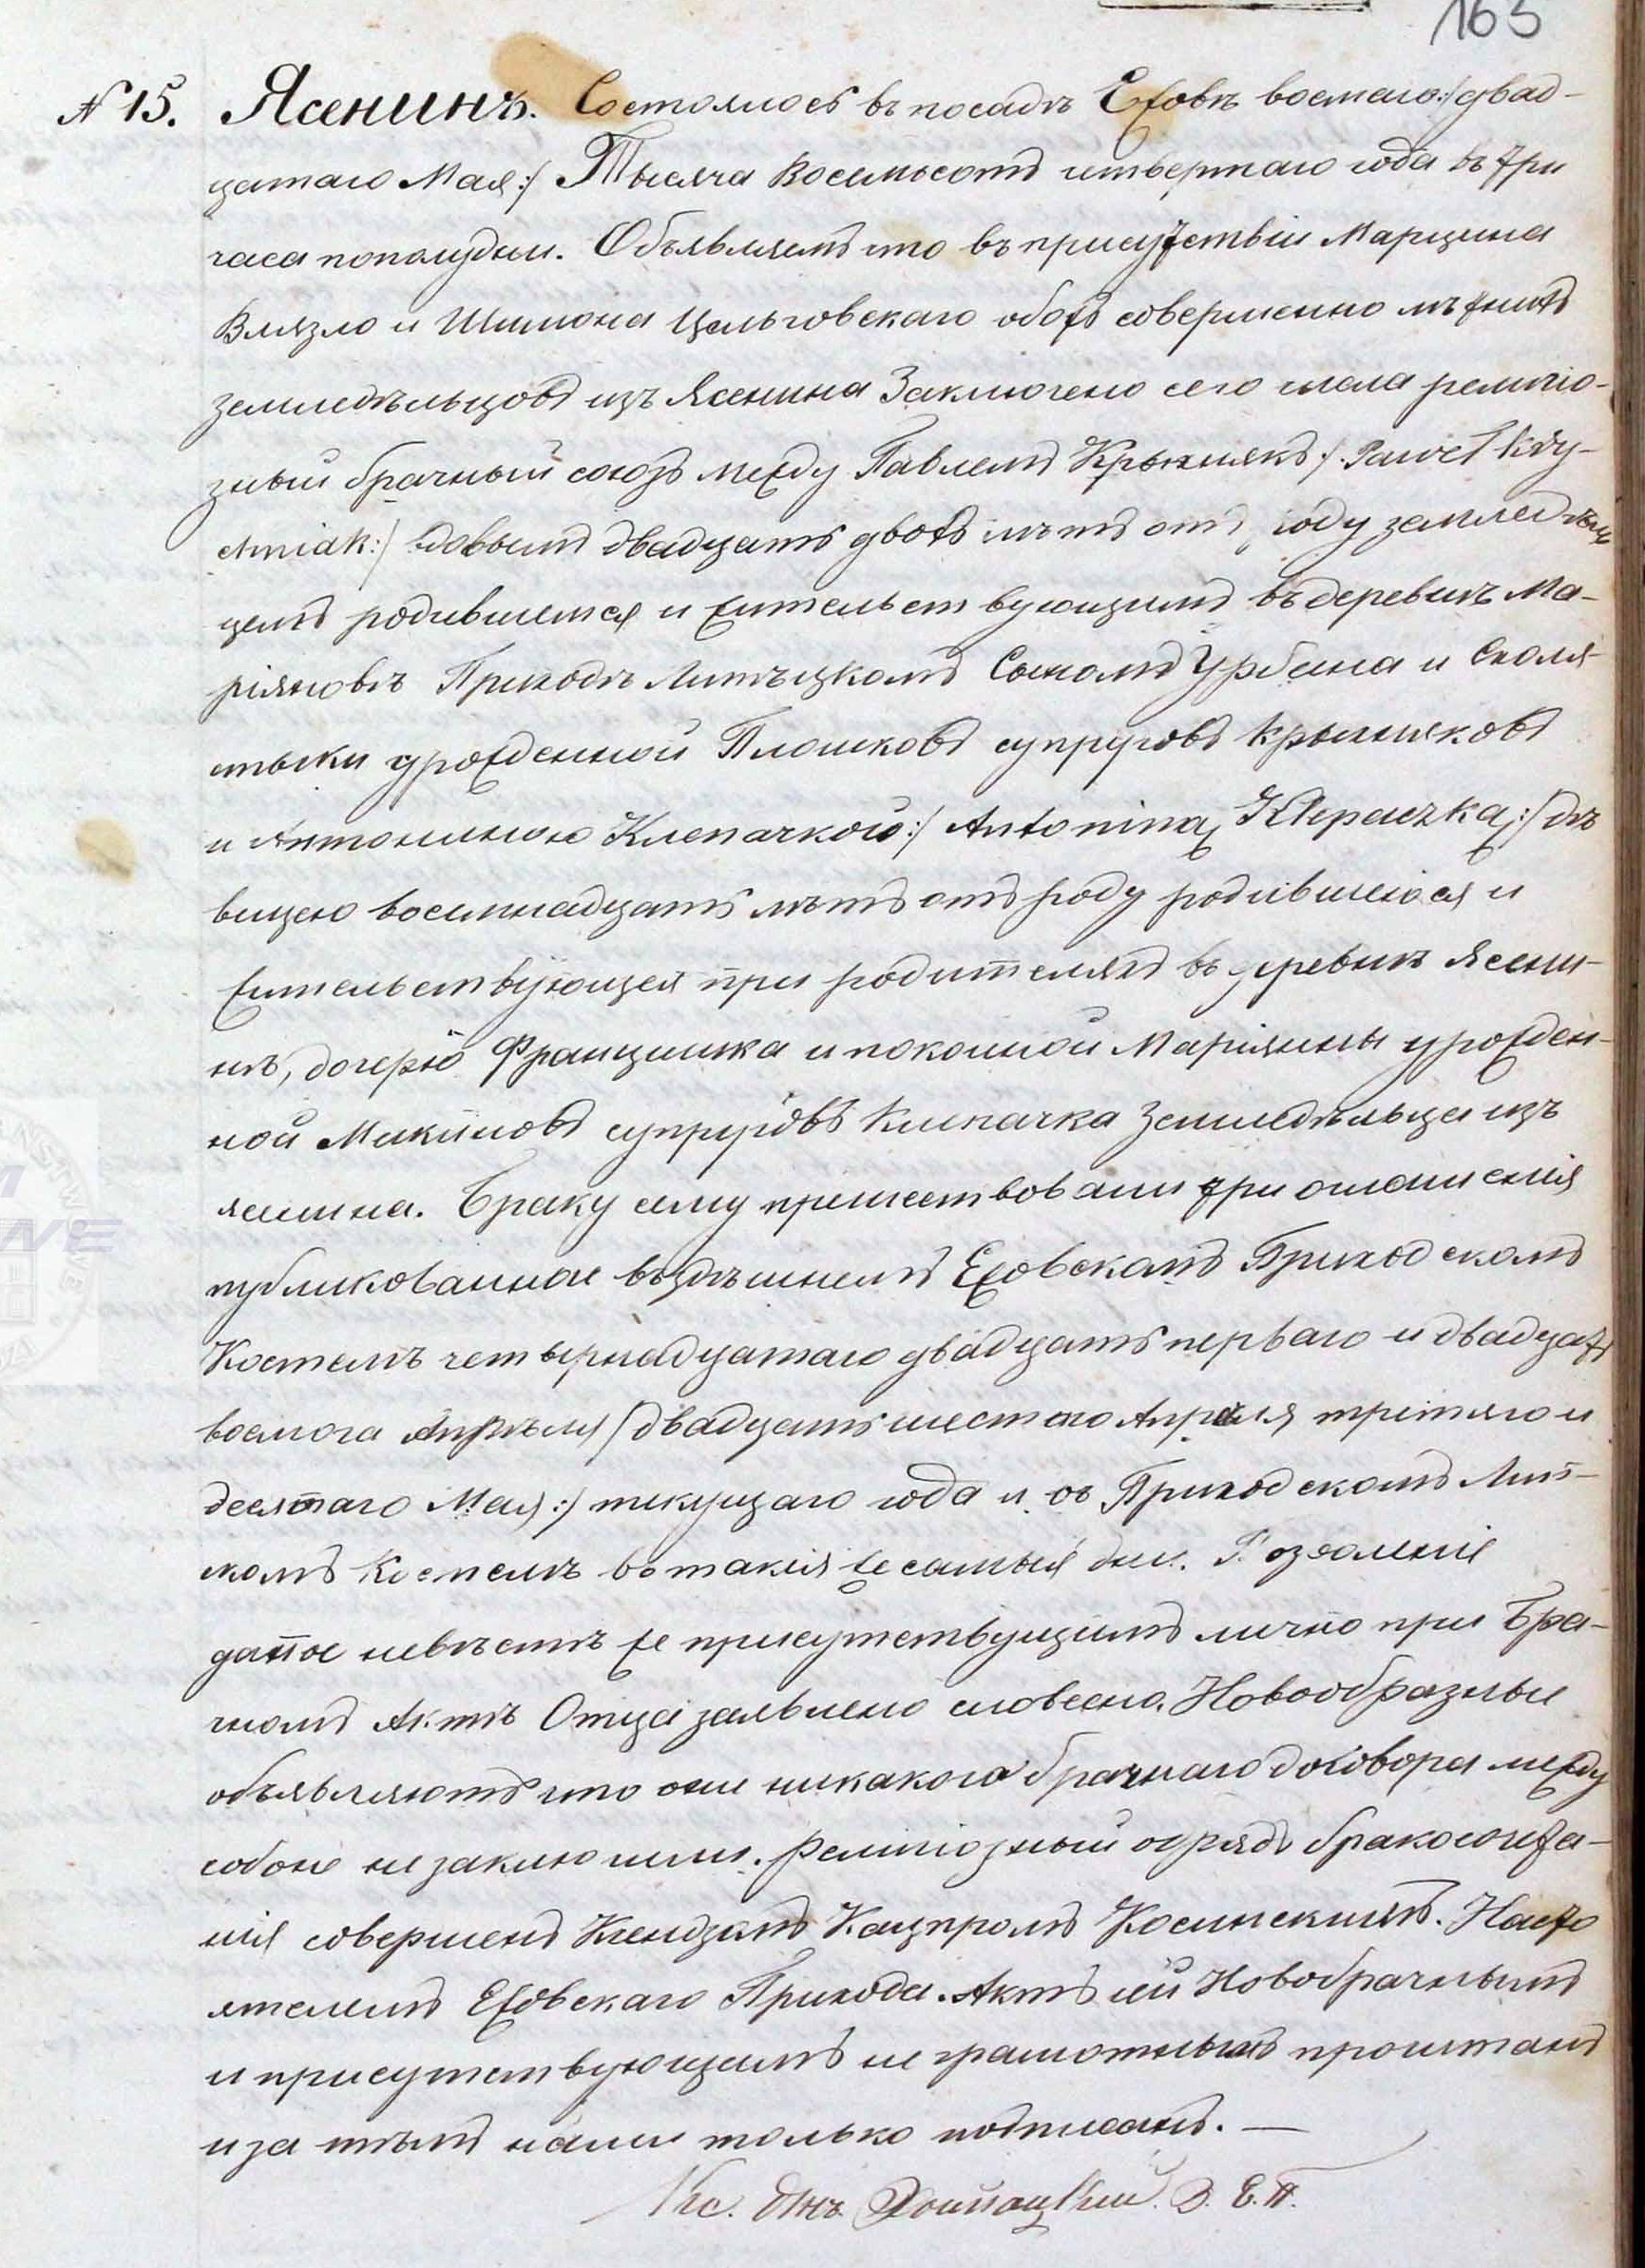 163
N 15. Ясенинъ. Состоялось въ посадѣ Ежовѣ восмаго :/ двад-
цатаго Мая :/ Тысяча Восемьсотъ четвертаго года въ три
часа пополудни. Объявляемъ что въ присутствіи Марцина
Влязло и Шимона Цельговскаго обохъ совершенно лѣтнихъ
земледѣльцовъ изъ Ясенина Заключено сего числа религіо-
зный брачный союзъ между Павлемъ Крыжнякъ :/ Paweł Kry-
żniak :/ вдовымъ двадцать двохъ лѣтъ отъ роду земледѣль-
цемъ родившемся и жительствующимъ въ деревнѣ Ма-
ріяновѣ Приходѣ Литѣцкомъ Сыномъ Урбана и Схоля-
стыки урожденной Плошковъ супруговъ Крыжняковъ
и Антониною Клепачкою :/ Antoniną Klepaczką :/ дѣ
вицею восемнадцать лѣтъ отъ роду родившеюся и
жительствующея при родителяхъ въ деревнѣ Ясени-
нѣ, дочерю Францишка и покойной Маріянны урожден-
ной Микиновъ супруговъ Клепачка Земледѣльца изъ
ясенина. Браку сему предшествовали три оглашенія
публикованное въ здѣшнемъ Ежовскомъ Приходскомъ
Костелѣ четырнадцатаго двадцать перваго и двадцать
восмога Апрѣля / двадцать шестого Апреля третяго и
десятаго Мая :/ текущаго года и въ Приходскомъ Лит-
комъ Костелѣ въ такія же самыя дни. Позволеніе
данное невѣстѣ же присутствующимъ лично при Бра-
чномъ Актѣ Отца заявлено словесно. Новообразные
объявляютъ что они никакого брачнаго договора между
собою не заключили. Религіозный обрядъ бракосочета-
нія совершенъ Ксендзомъ Кацпромъ Косинскимъ. Насто
ятелемъ Ежовскаго Прихода. Актъ сей Новобрачнымъ
и присутствующимъ не грамотнымъ прочитанъ
и за тѣмъ нами только подписанъ. —
Кс. Янъ Хойнацкий. З. Е. П.